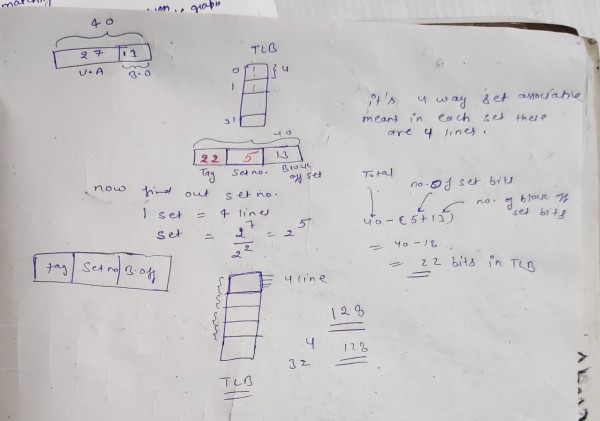 matching
graph
40
27 13
V.A B.O
TLB
0 1 4
1 1
31
it's 4 way set associative
means in each set there
are 4 lines.
40
22 5 13
Tag Set no. Block off set
now find out set no.
1 set = 4 lines
Set = 2^7 / 2^2 = 2^5
Total
no. of set bits
no. of block off set bits
40-(5+13)
= 40-18
= 22 bits in TLB
Tag Set no B.off
4 line
128
4
32 128
TLB